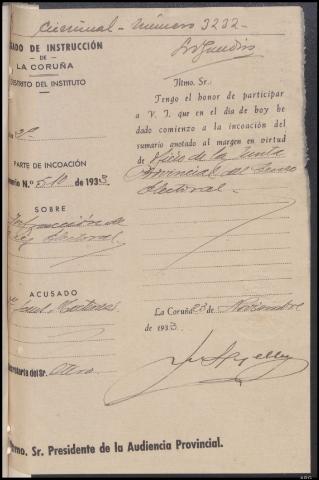 Criminal - número 3232 -
ADO DE INSTRUCCIÓN
DE
LA CORUÑA
DISTRITO DEL INSTITUTO
PARTE DE INCOACIÓN
ario N.º 510 de 1933
SOBRE
Infracción de
Ley Electoral
ACUSADO
Martínez
ecretaría del Sr. Otero
Iltmo. Sr.:
Tengo el honor de participar
a V. I. que en el día de hoy he
dado comienzo a la incoación del
sumario anotado al margen en virtud
de oficio de la Junta
Provincial del Censo
Electoral.
La Coruña 23 de Noviembre
de 1933
ltmo. Sr. Presidente de la Audiencia Provincial.